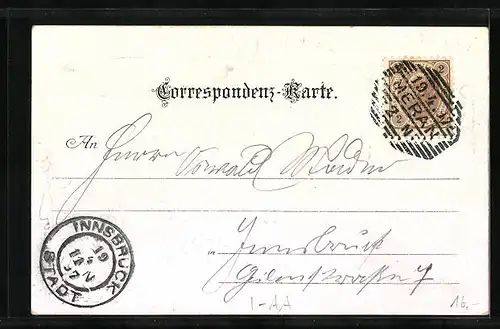 Correspondenz-Karte.
2
19.4.97
MERAN
An Herrn Oswald
in Innsbruck
Gilmstrasse 7
INNSBRUCK
19
97
STADT
I-AA
16,-